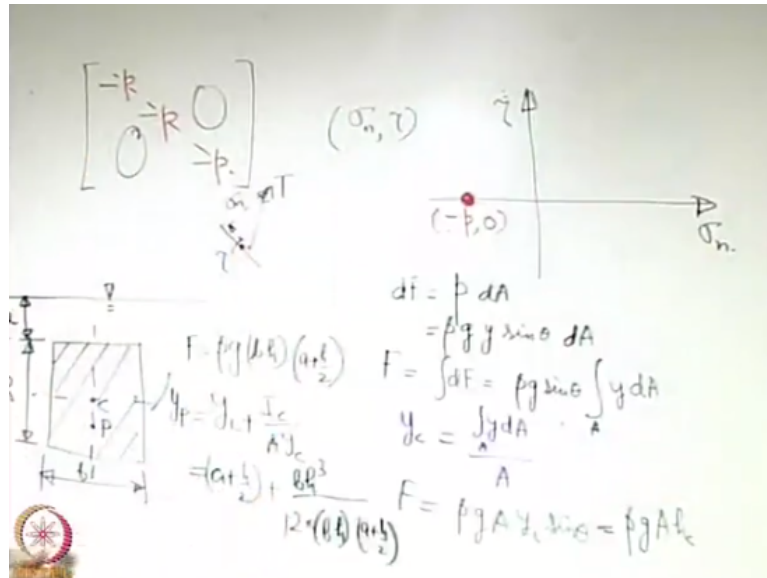 [ -p 0
-p
0 -p ]
(σn, τ)
τ
(-p, 0)
σn
σn T
τ
dF = p dA
= ρ g y sin θ dA
F = ∫dF = ρg sinθ ∫A y dA
yc = ∫A y dA / A
F = ρ g A yc sinθ = ρ g A hc
F = ρg (bh) (a + h/2)
yp = yc + Ic / A yc
= (a + h/2) + bh³ / 12 * (bh) (a + h/2)
c
p
b